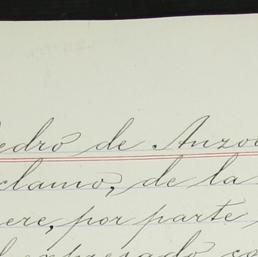 Pedro de Anzo
clamo, de la
ere, por parte
el expresado co